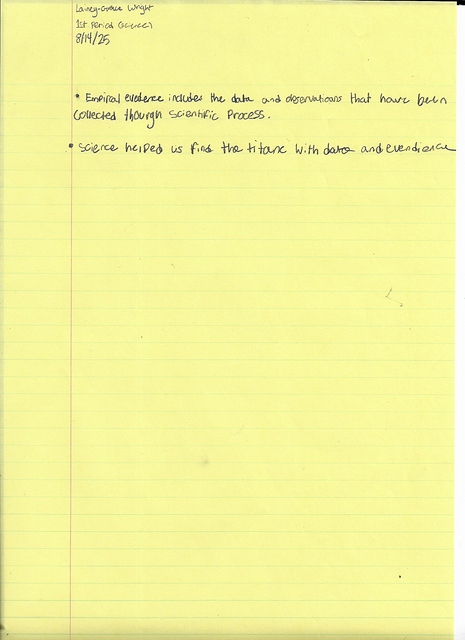 Lainey-Grace Wright
1st Period (science)
8/14/25
• Empirical evedence includes the data and observations that have been
collected thourgh Scientific Process.
• Science helped us find the titanc with data and evendience